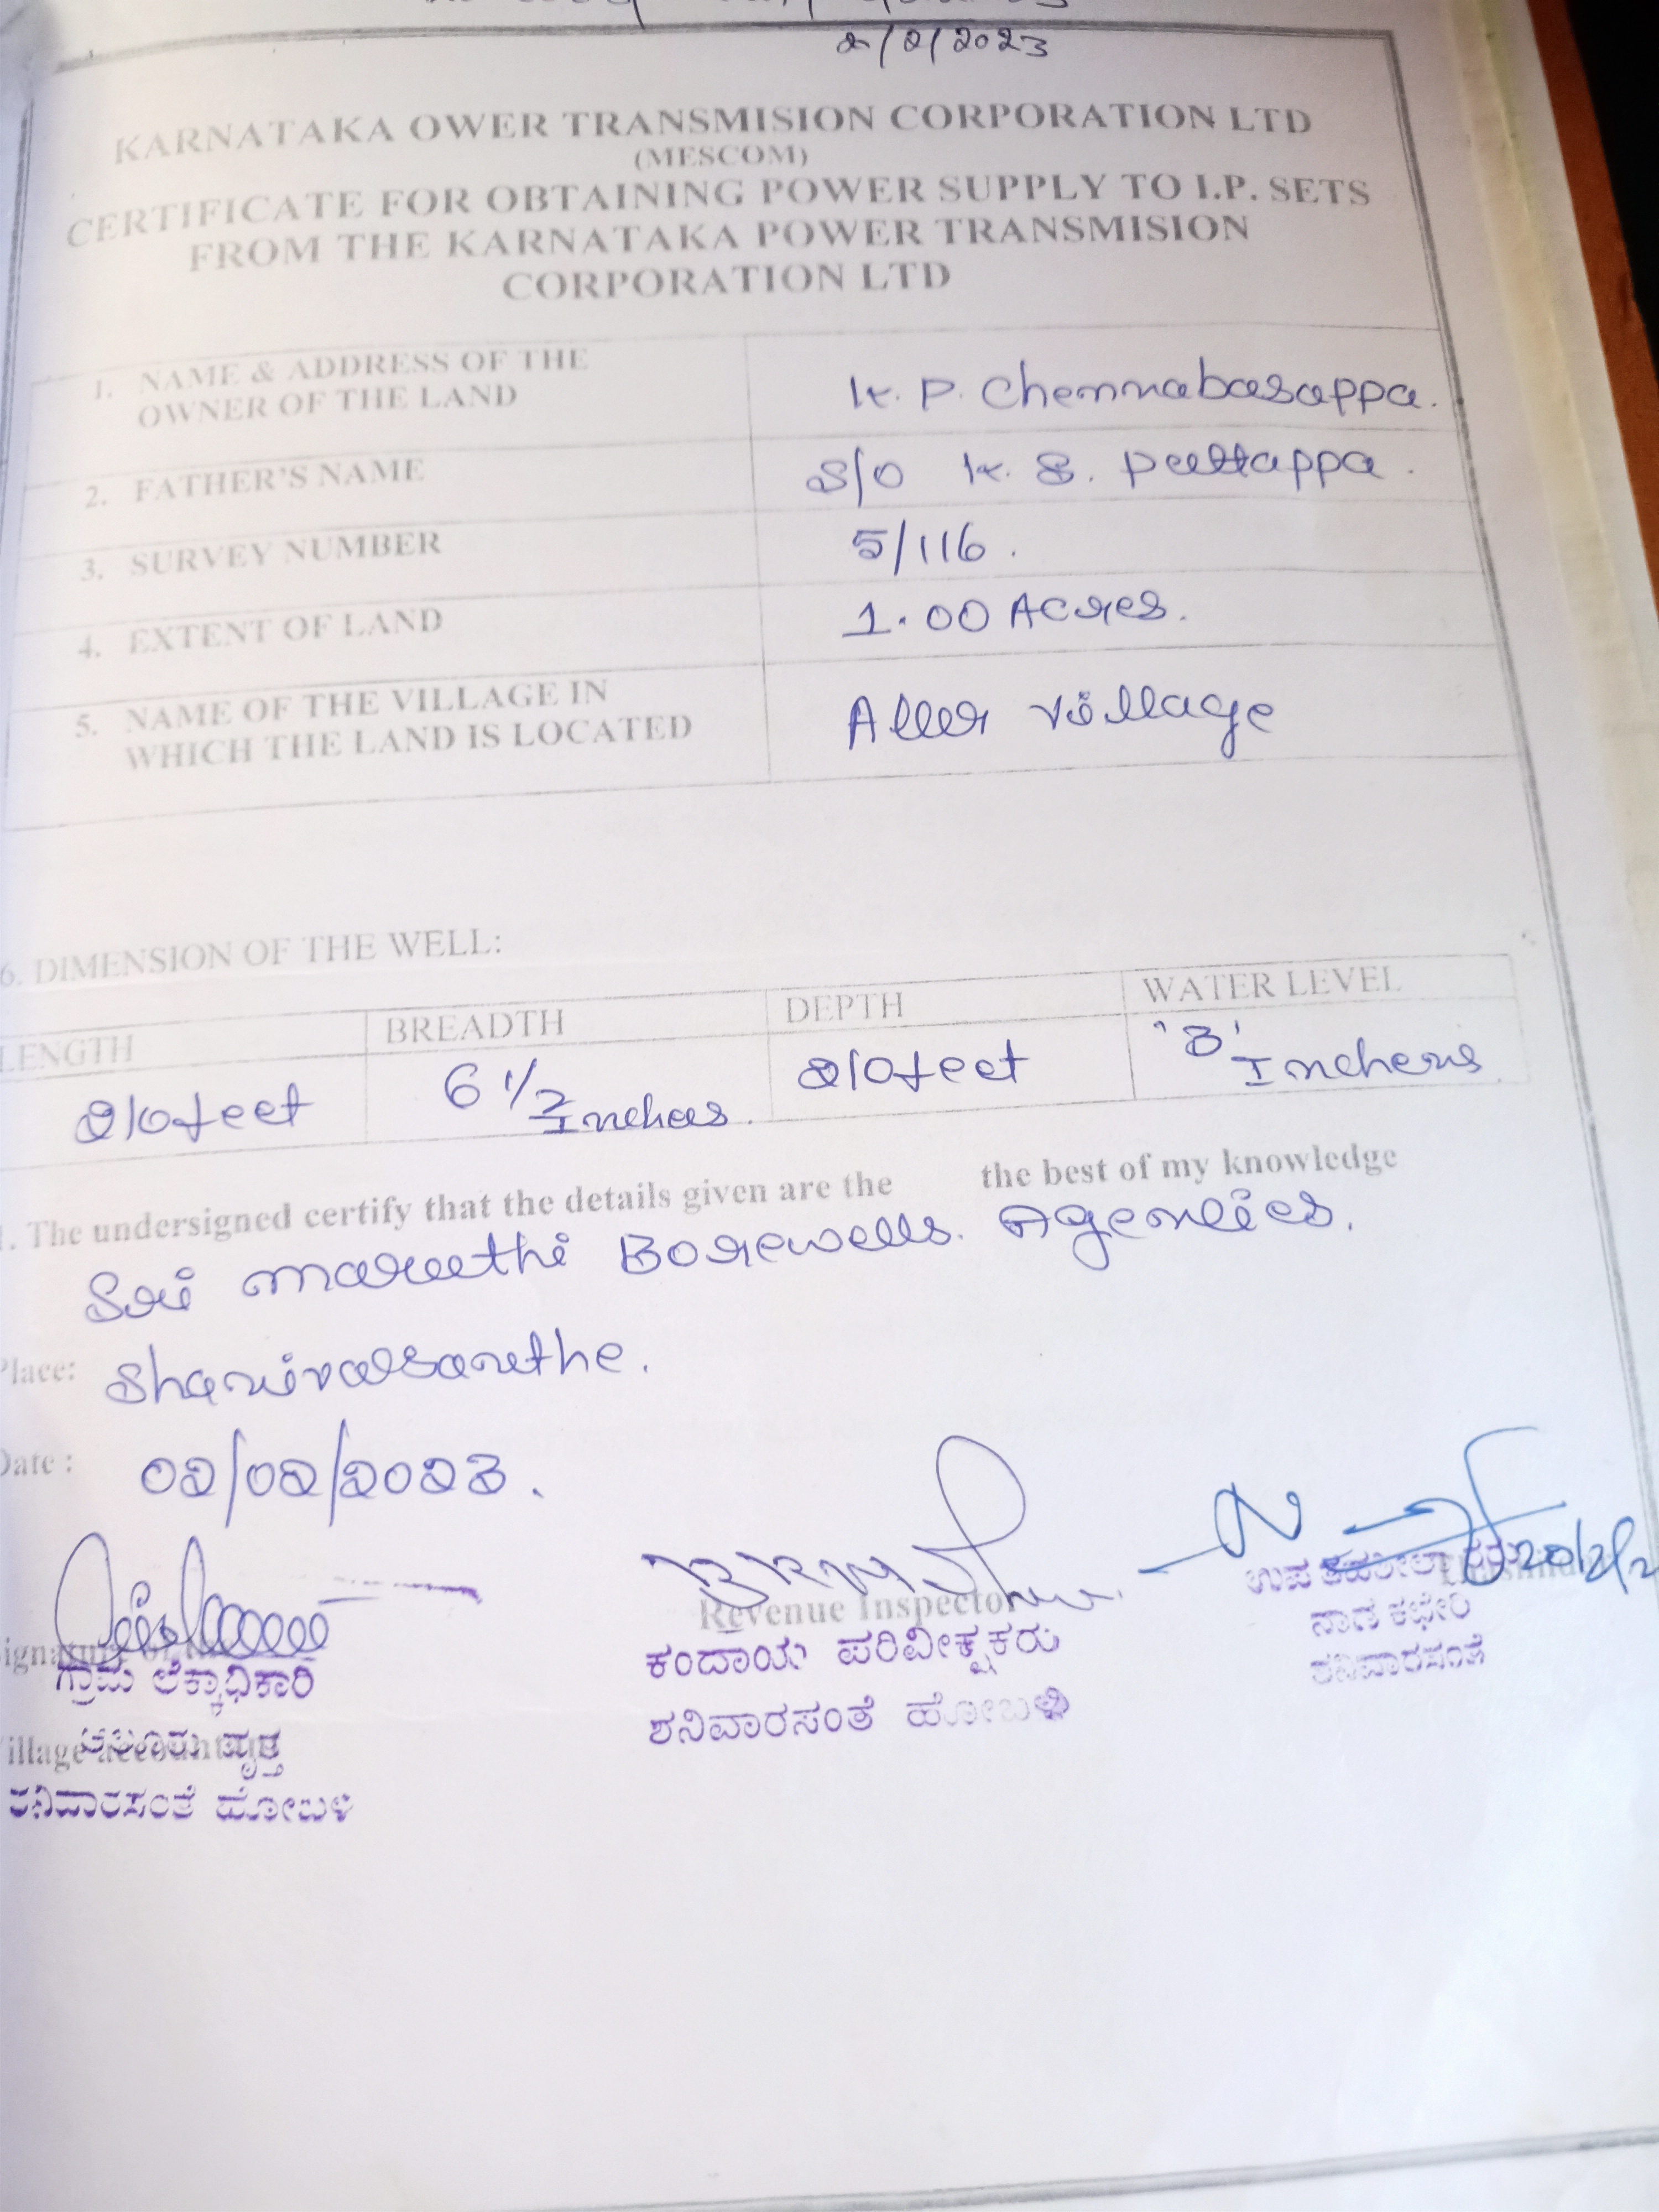 2/2/2023
KARNATAKA OWER TRANSMISION CORPORATION LTD
(MESCOM)
CERTIFICATE FOR OBTAINING POWER SUPPLY TO I.P. SETS
FROM THE KARNATAKA POWER TRANSMISION
CORPORATION LTD
1. NAME & ADDRESS OF THE
OWNER OF THE LAND
K. P. Chennabasappa.
2. FATHER'S NAME
S/O K. S. Puttappa.
3. SURVEY NUMBER
5/116.
4. EXTENT OF LAND
1.00 Acres.
5. NAME OF THE VILLAGE IN
WHICH THE LAND IS LOCATED
Allur Village
6. DIMENSION OF THE WELL:
LENGTH BREADTH DEPTH WATER LEVEL
210feet 6 1/2 Inches. 210feet '3' Inchers
1. The undersigned certify that the details given are the the best of my knowledge
Sri maruthi Borewells. Agencies.
Place: Shanivarsanthe.
Date : 02/02/2023.
Revenue Inspector
ಕಂದಾಯ ಪರಿವೀಕ್ಷಕರು
ಶನಿವಾರಸಂತೆ ಹೋಬಳಿ
ಉಪ
ನಾಡ ಕಛೇರಿ
ಶನಿವಾರಸಂತೆ
ಗ್ರಾಮ ಲೆಕ್ಕಾಧಿಕಾರಿ
ವೃತ್ತ
ಶನಿವಾರಸಂತೆ ಹೋಬಳಿ